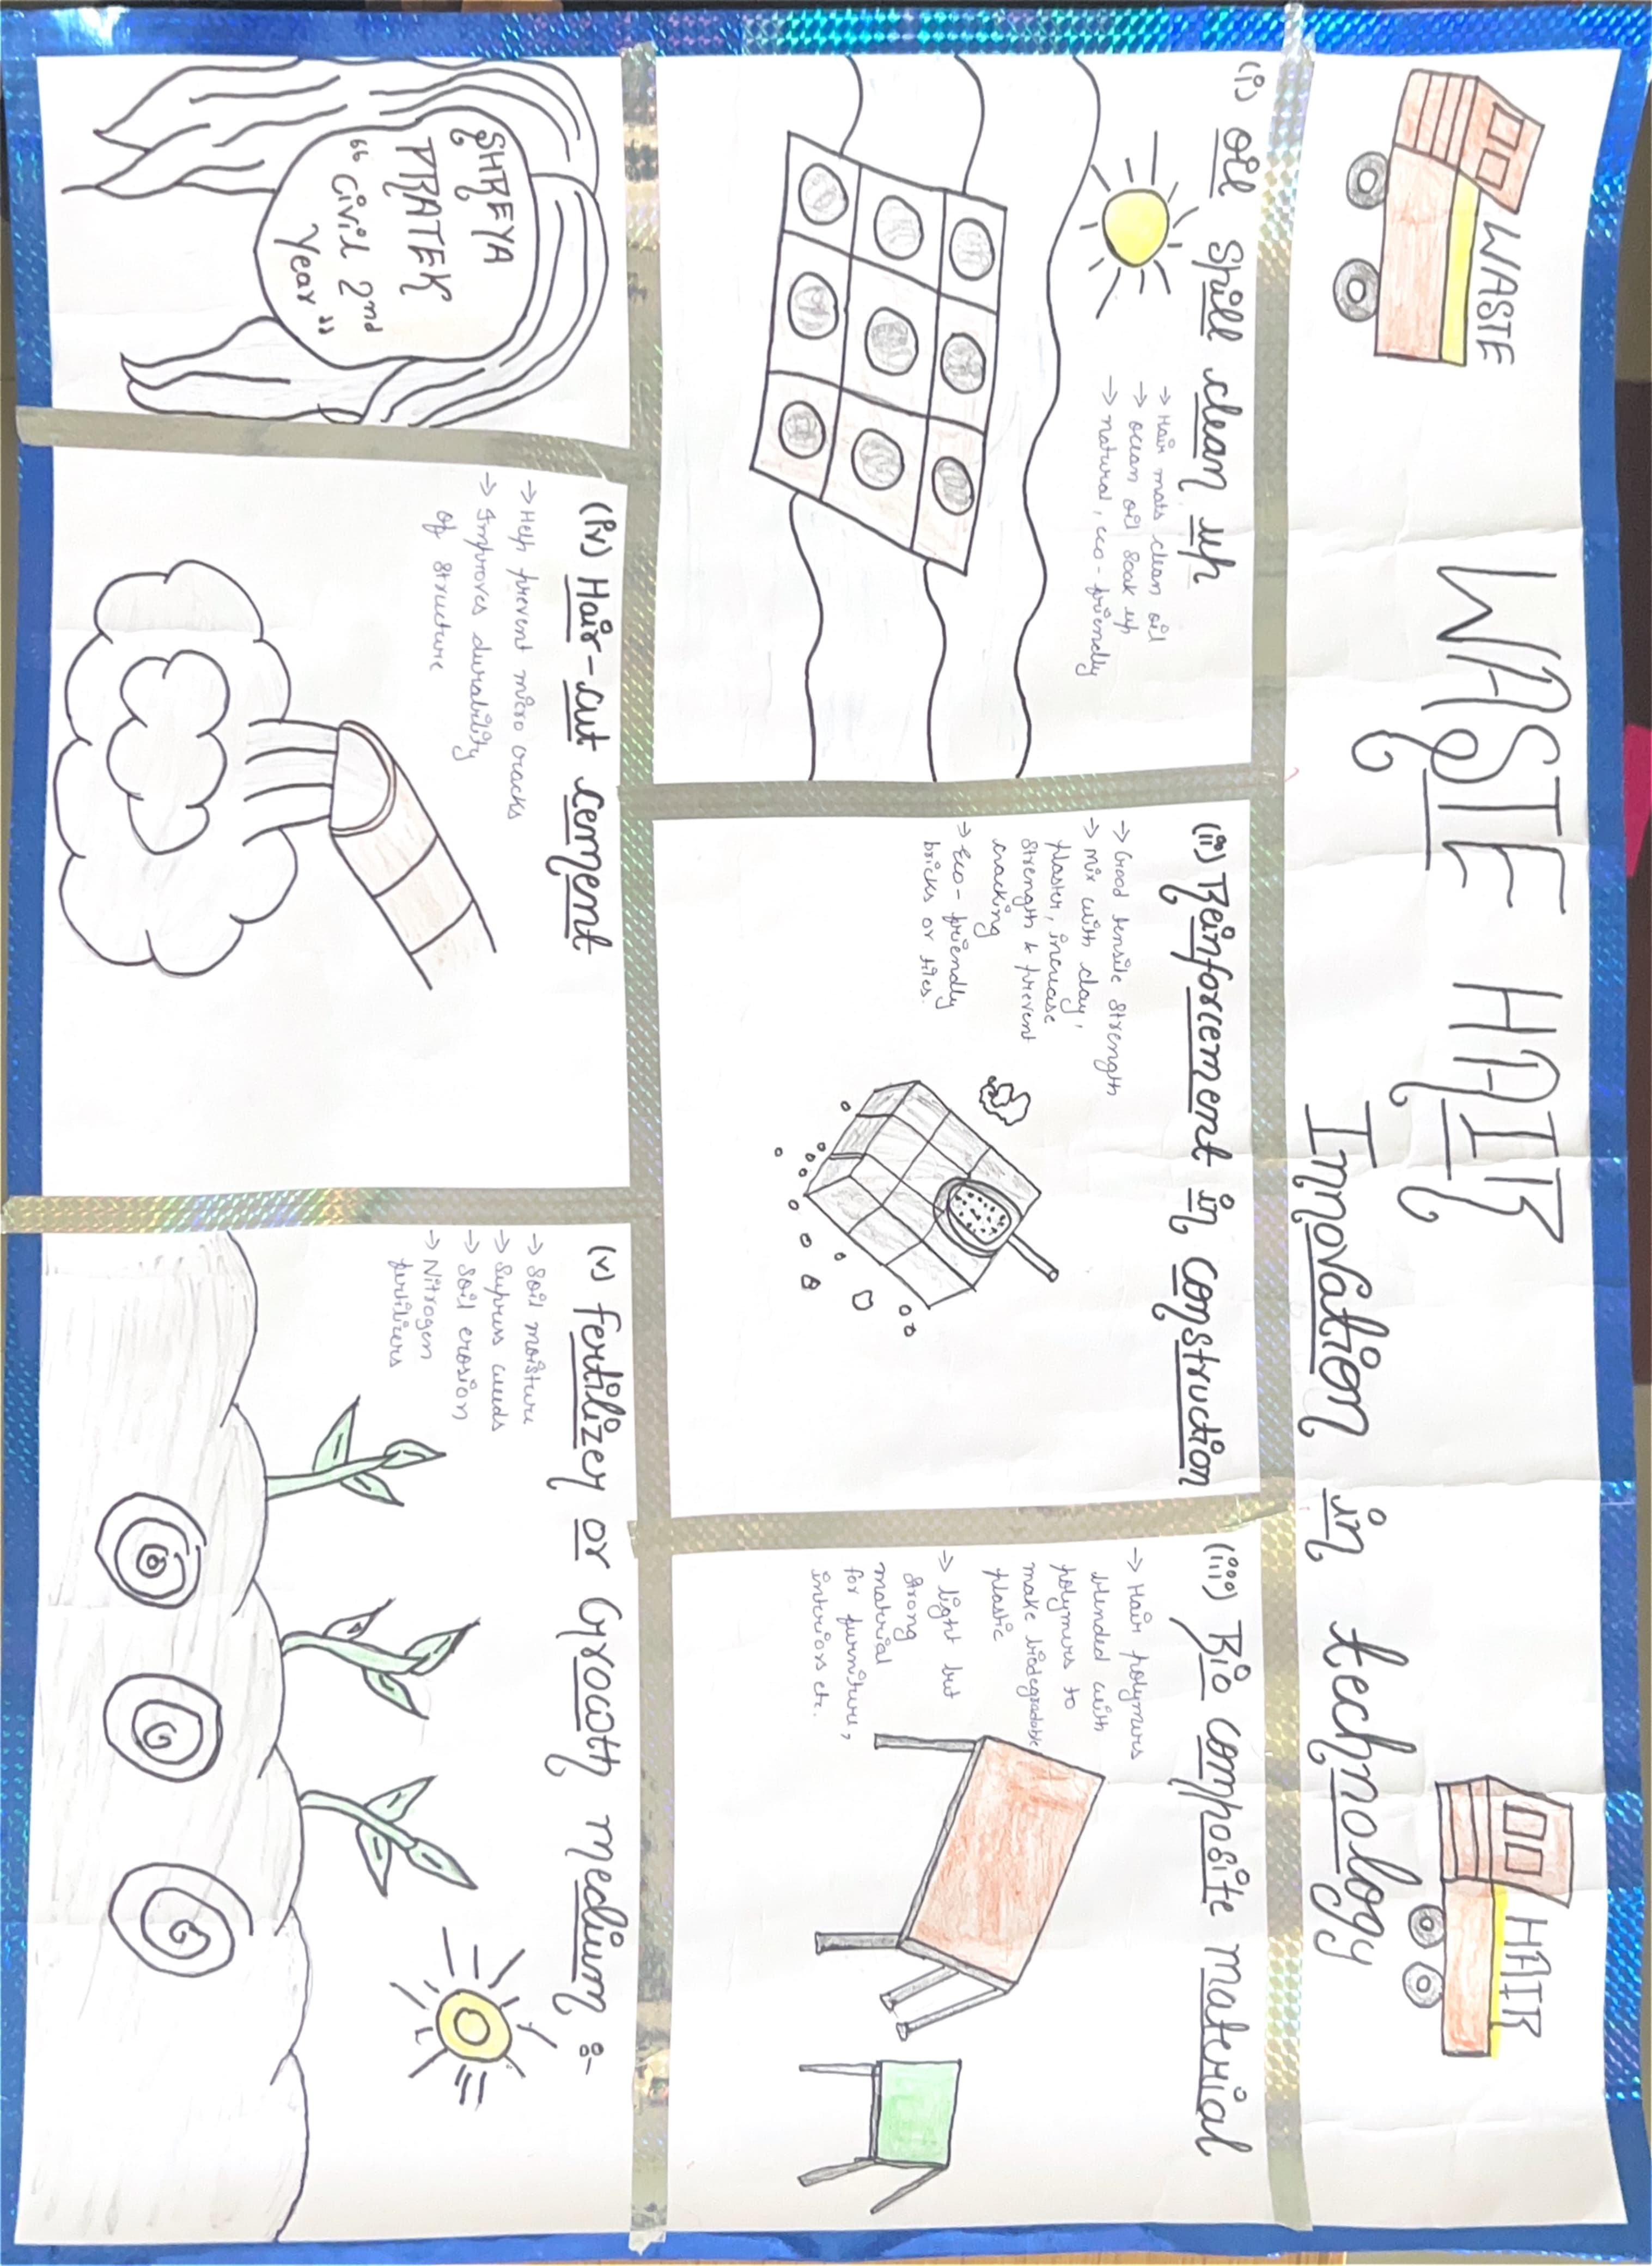 WASTE
WASTE HAIR
HAIR
Innovation in technology
(i) Oil Spill clean up
→ Hair mats clean oil
→ ocean oil soak up
→ natural, eco-friendly
(ii) Reinforcement in construction
→ Good tensile strength
→ mix with clay,
plaster, increase
strength & prevent
cracking
→ Eco-friendly
bricks or tiles.
(iii) Bio composite material
→ Hair polymers
blended with
polymers to
make biodegradable
plastic
→ light but
strong
material
for furniture,
interiors etc.
SHREYA
PRATEK
“ Civil 2nd
Year ”
(iv) Hair-cut cement
→ Help prevent micro cracks
→ Improves durability
of structure
(v) Fertilizer or Growth medium :-
→ Soil moisture
→ Supress weeds
→ Soil erosion
→ Nitrogen
fertilizers